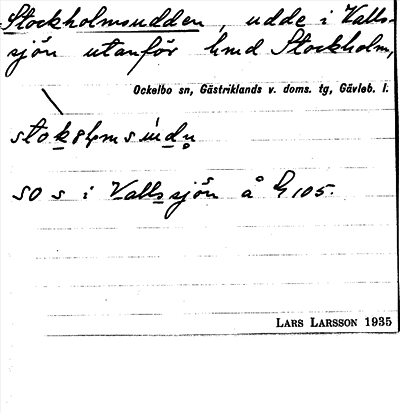 Stockholmsudden, udde i Valls-
sjön utanför hmd Stockholm,
Ockelbo sn, Gästriklands v. doms. tg, Gävleb. l.
SO s i Vallssjön å
LARS LARSSON 1935